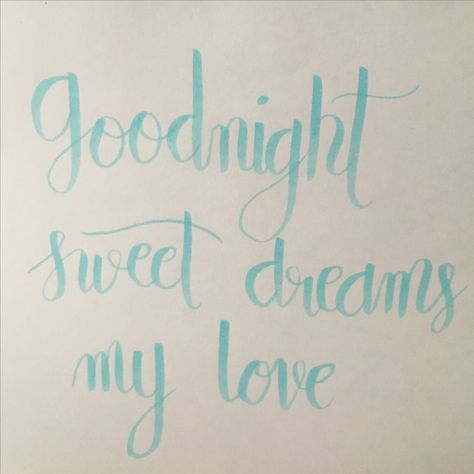 goodnight
sweet dreams
my love